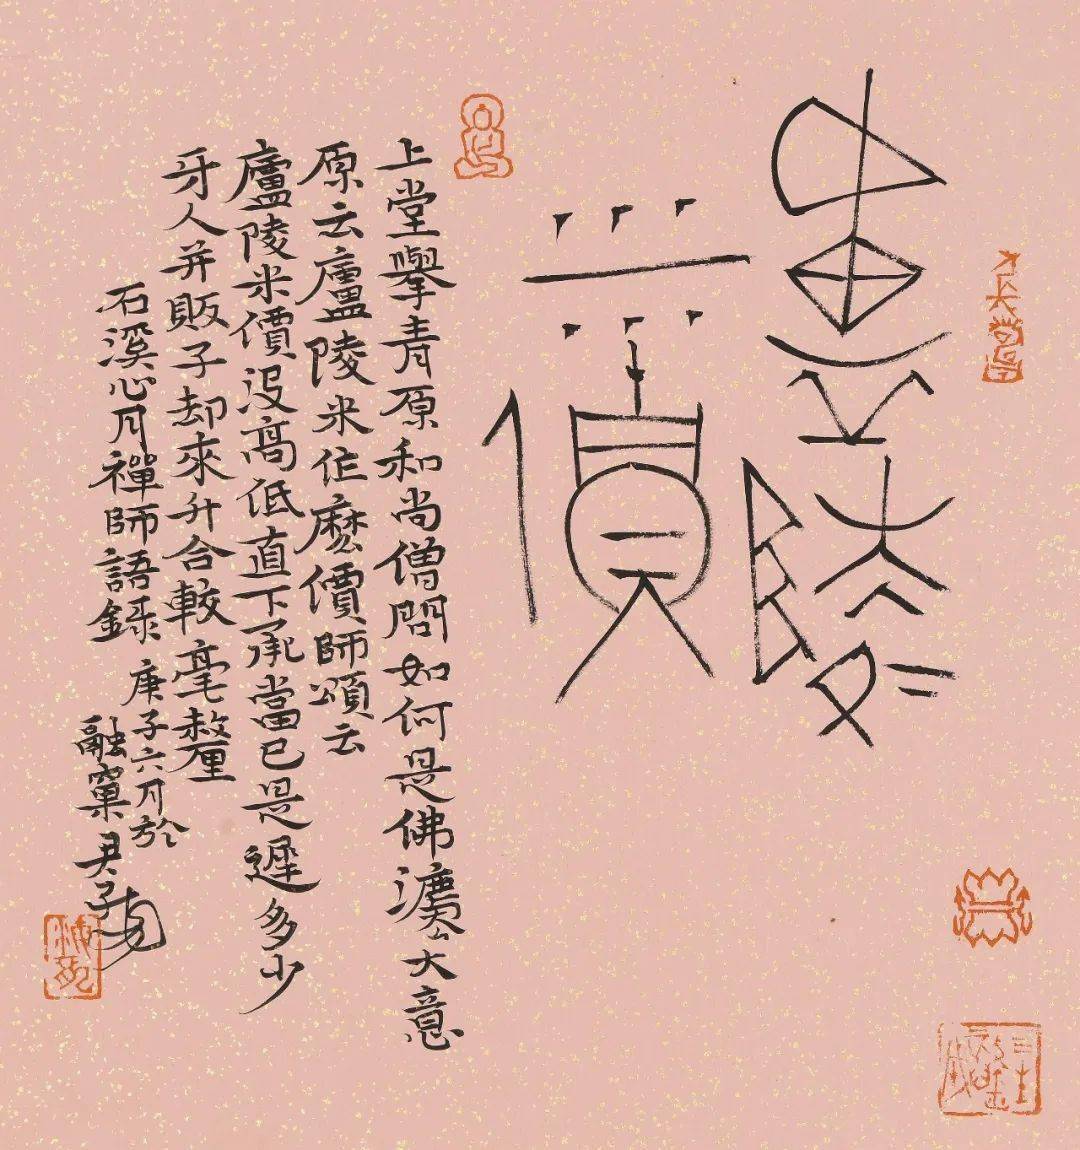 廬陵
米價
上堂擧青原和尚僧問如何是佛灋大意
原云廬陵米作麽價師頌云
廬陵米價没高低直下承當已是遲多少
牙人并販子却來升合較毫釐
石溪心月禪師語錄
庚子六月於
融窠君子